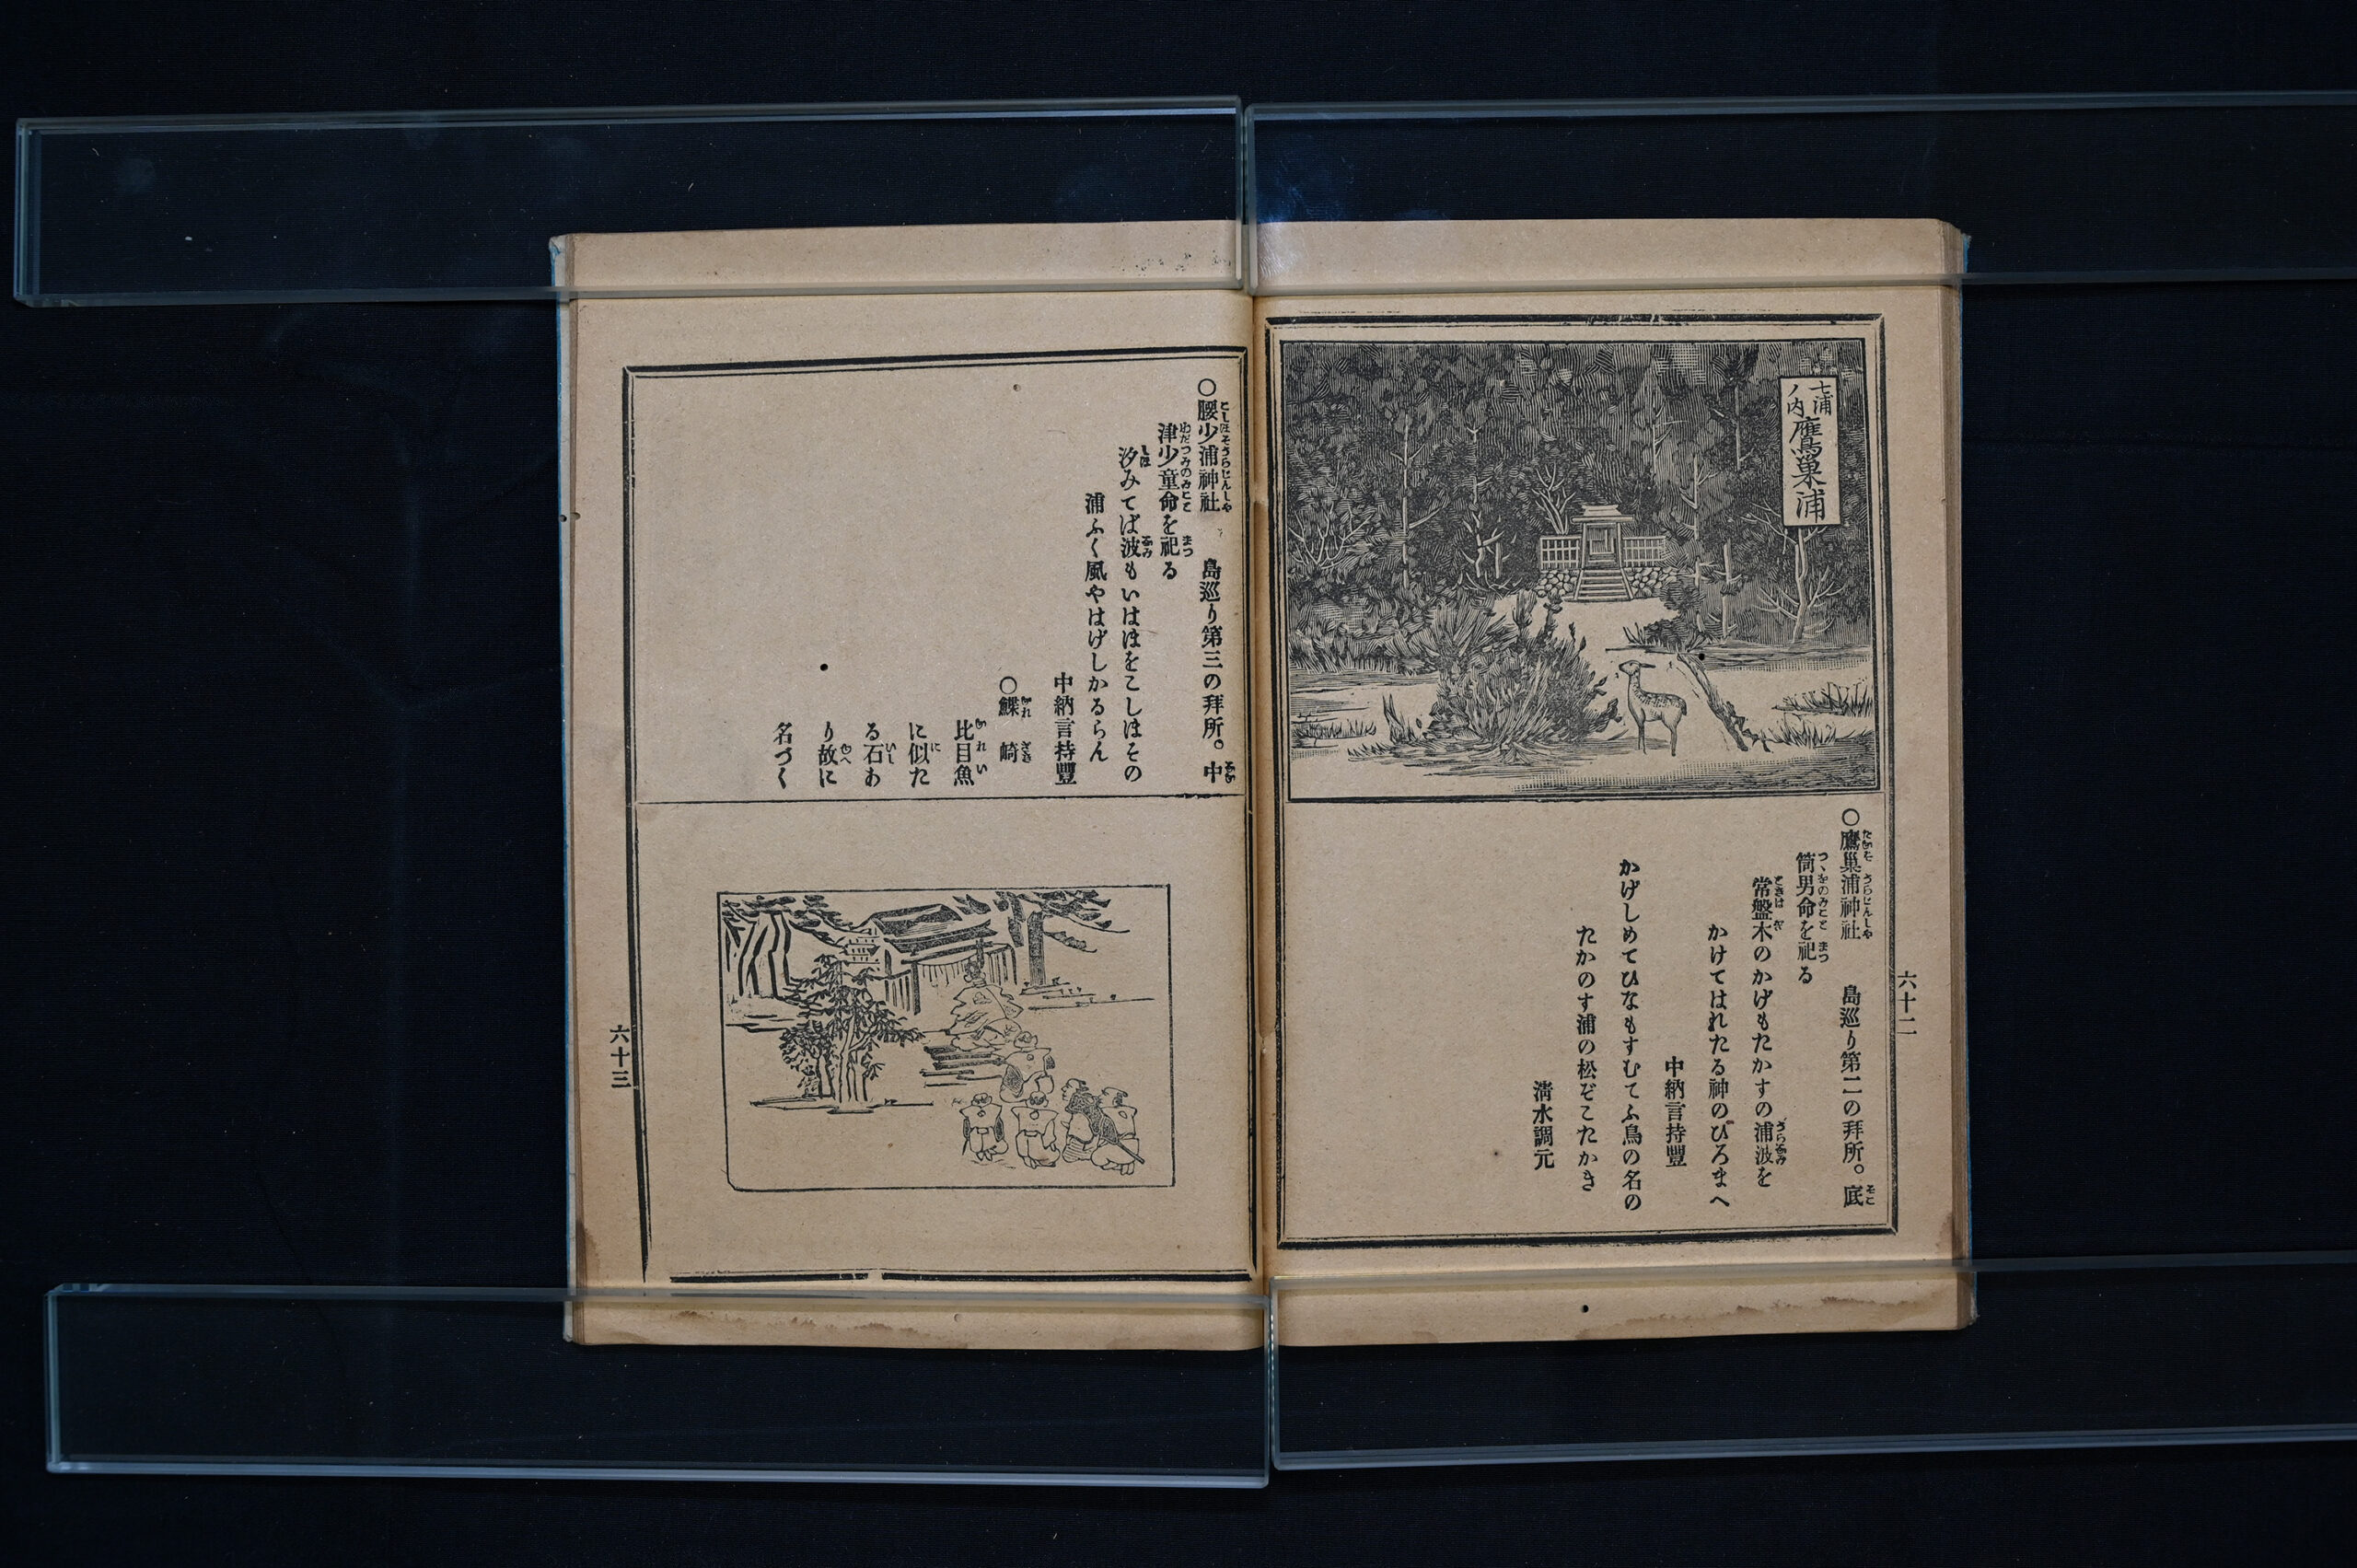 七浦ノ内 鷹巣浦
六十二
○鷹巣浦神社 島巡り第二の拜所。底
筒男命を祀る
常盤木のかげもたかすの浦波を
かけてはれたる神のひろまへ
中納言持豐
かげしめてひなもすむてふ鳥の名の
たかのす浦の松ぞこたかき
淸水調元
○腰少浦神社 島巡り第三の拜所。中
津少童命を祀る
汐みてば波もいはほをこしほその
浦ふく風やはげしかるらん
中納言持豐
○鰈崎
比目魚
に似た
る石あ
り故に
名づく
六十三